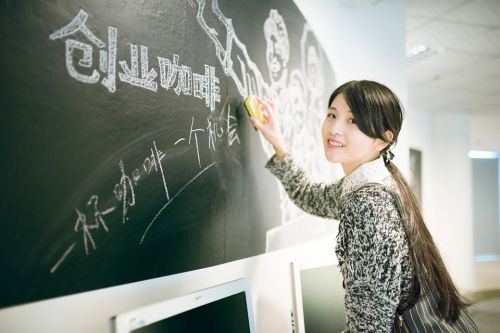 创业咖啡
一杯咖啡一个机会